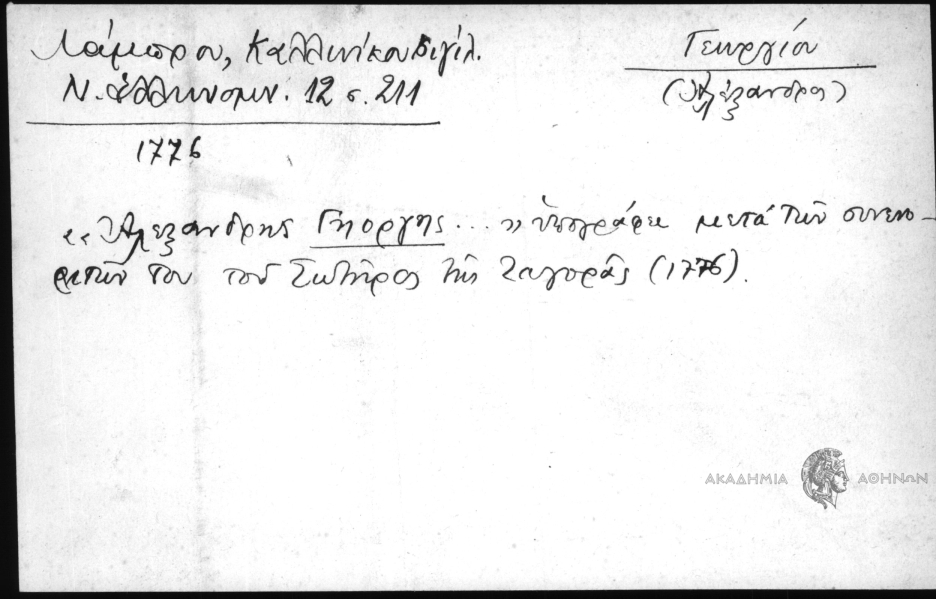 Λάμπρου, Καλλινίκου Σιγίλ.
Ν. Ἑλληνομν. 12 σ. 211
1776
Γεωργίου
(Ἀλέξανδρος)
"Ἀλεξανδρης Γιοργης... " ὑπογράφει μετά τῶν συνενο-
ριτῶν του τοῦ Σωτῆρος τῆς Ζαγορᾶς (1776).
ΑΚΑΔΗΜΙΑ ΑΘΗΝΩΝ